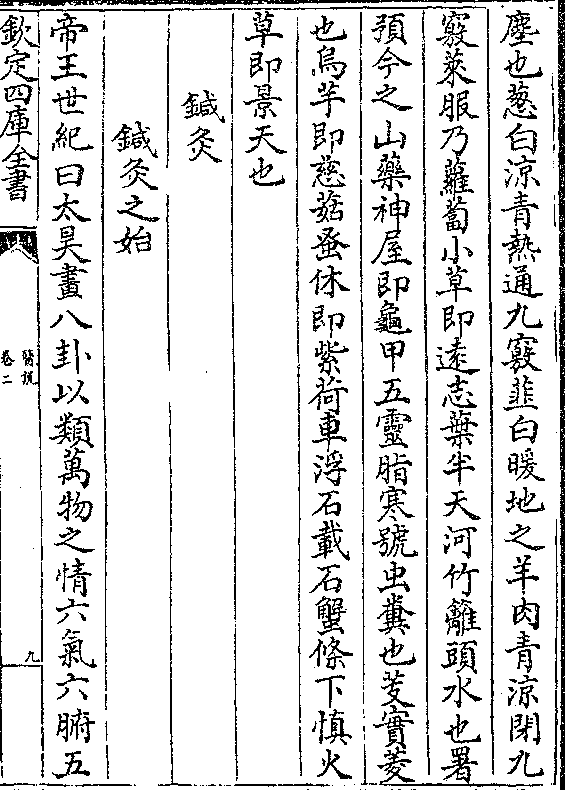 塵也葱白涼青熱通九竅韭白暖地之羊肉青涼閉九
竅萊服乃蘿蔔小草即遠志葉半天河竹籬頭水也署
預今之山藥神屋即龜甲五靈脂寒號虫糞也芰實菱
也烏芋即慈菇蚤休即紫荷車浮石載石蟹條下慎火
草即景天也
鍼灸
鍼灸之始
帝王世紀曰太昊畫八卦以類萬物之情六氣六腑五
欽定四庫全書
醫說
卷二
九